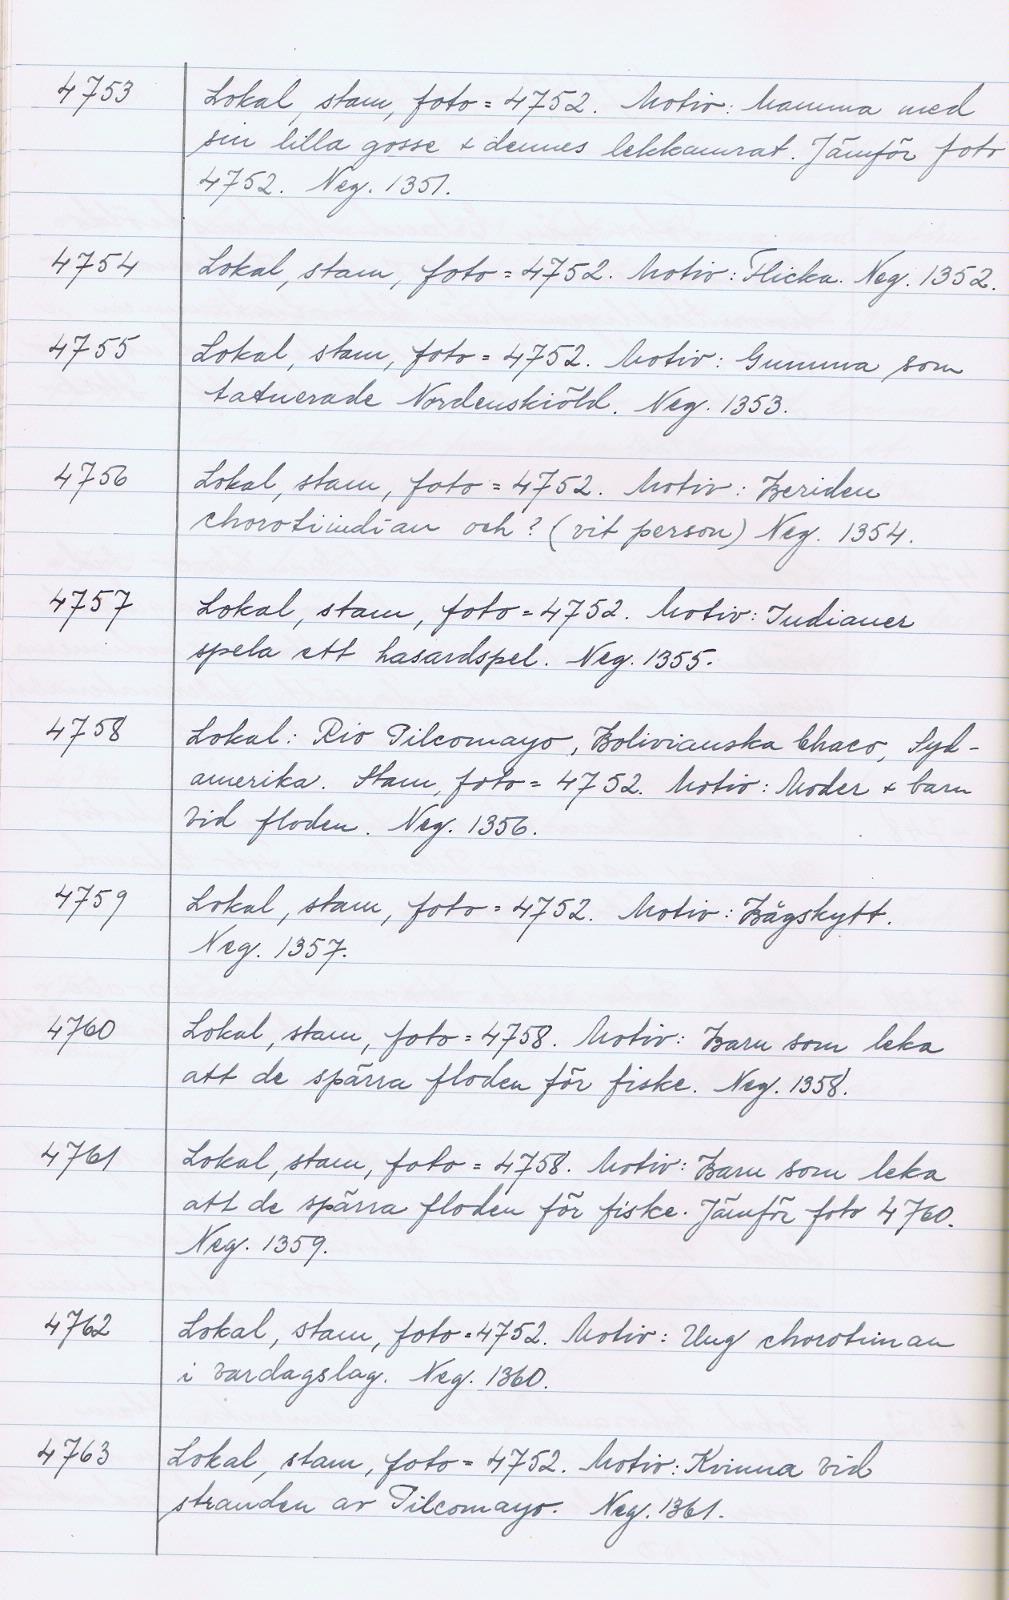 4753 Lokal, stam, foto = 4752. Motiv: Mamma med
sin lilla gosse + dennes lekkamrat. Jämför foto
4752. Neg. 1351.
4754 Lokal, stam, foto = 4752. Motiv: Flicka. Neg. 1352.
4755 Lokal, stam, foto = 4752. Motiv: Gumma som
tatuerade Nordenskiöld. Neg. 1353.
4756 Lokal, stam, foto = 4752. Motiv: Beriden
chorotiindian och ? (vit person) Neg. 1354.
4757 Lokal, stam, foto = 4752. Motiv: Indianer
spela ett hasardspel. Neg. 1355.
4758 Lokal: Rio Pilcomayo, Bolivianska Chaco, Syd-
amerika. Stam, foto = 4752. Motiv: Moder + barn
vid floden. Neg. 1356.
4759 Lokal, stam, foto = 4752. Motiv: Bågskytt.
Neg. 1357.
4760 Lokal, stam, foto = 4758. Motiv: Barn som leka
att de spärra floden för fiske. Neg. 1358.
4761 Lokal, stam, foto = 4758. Motiv: Barn som leka
att de spärra floden för fiske. Jämför foto 4760.
Neg. 1359.
4762 Lokal, stam, foto = 4752. Motiv: Ung chorotiman
i vardagslag. Neg. 1360.
4763 Lokal, stam, foto = 4752. Motiv: Kvinna vid
stranden av Pilcomayo. Neg. 1361.